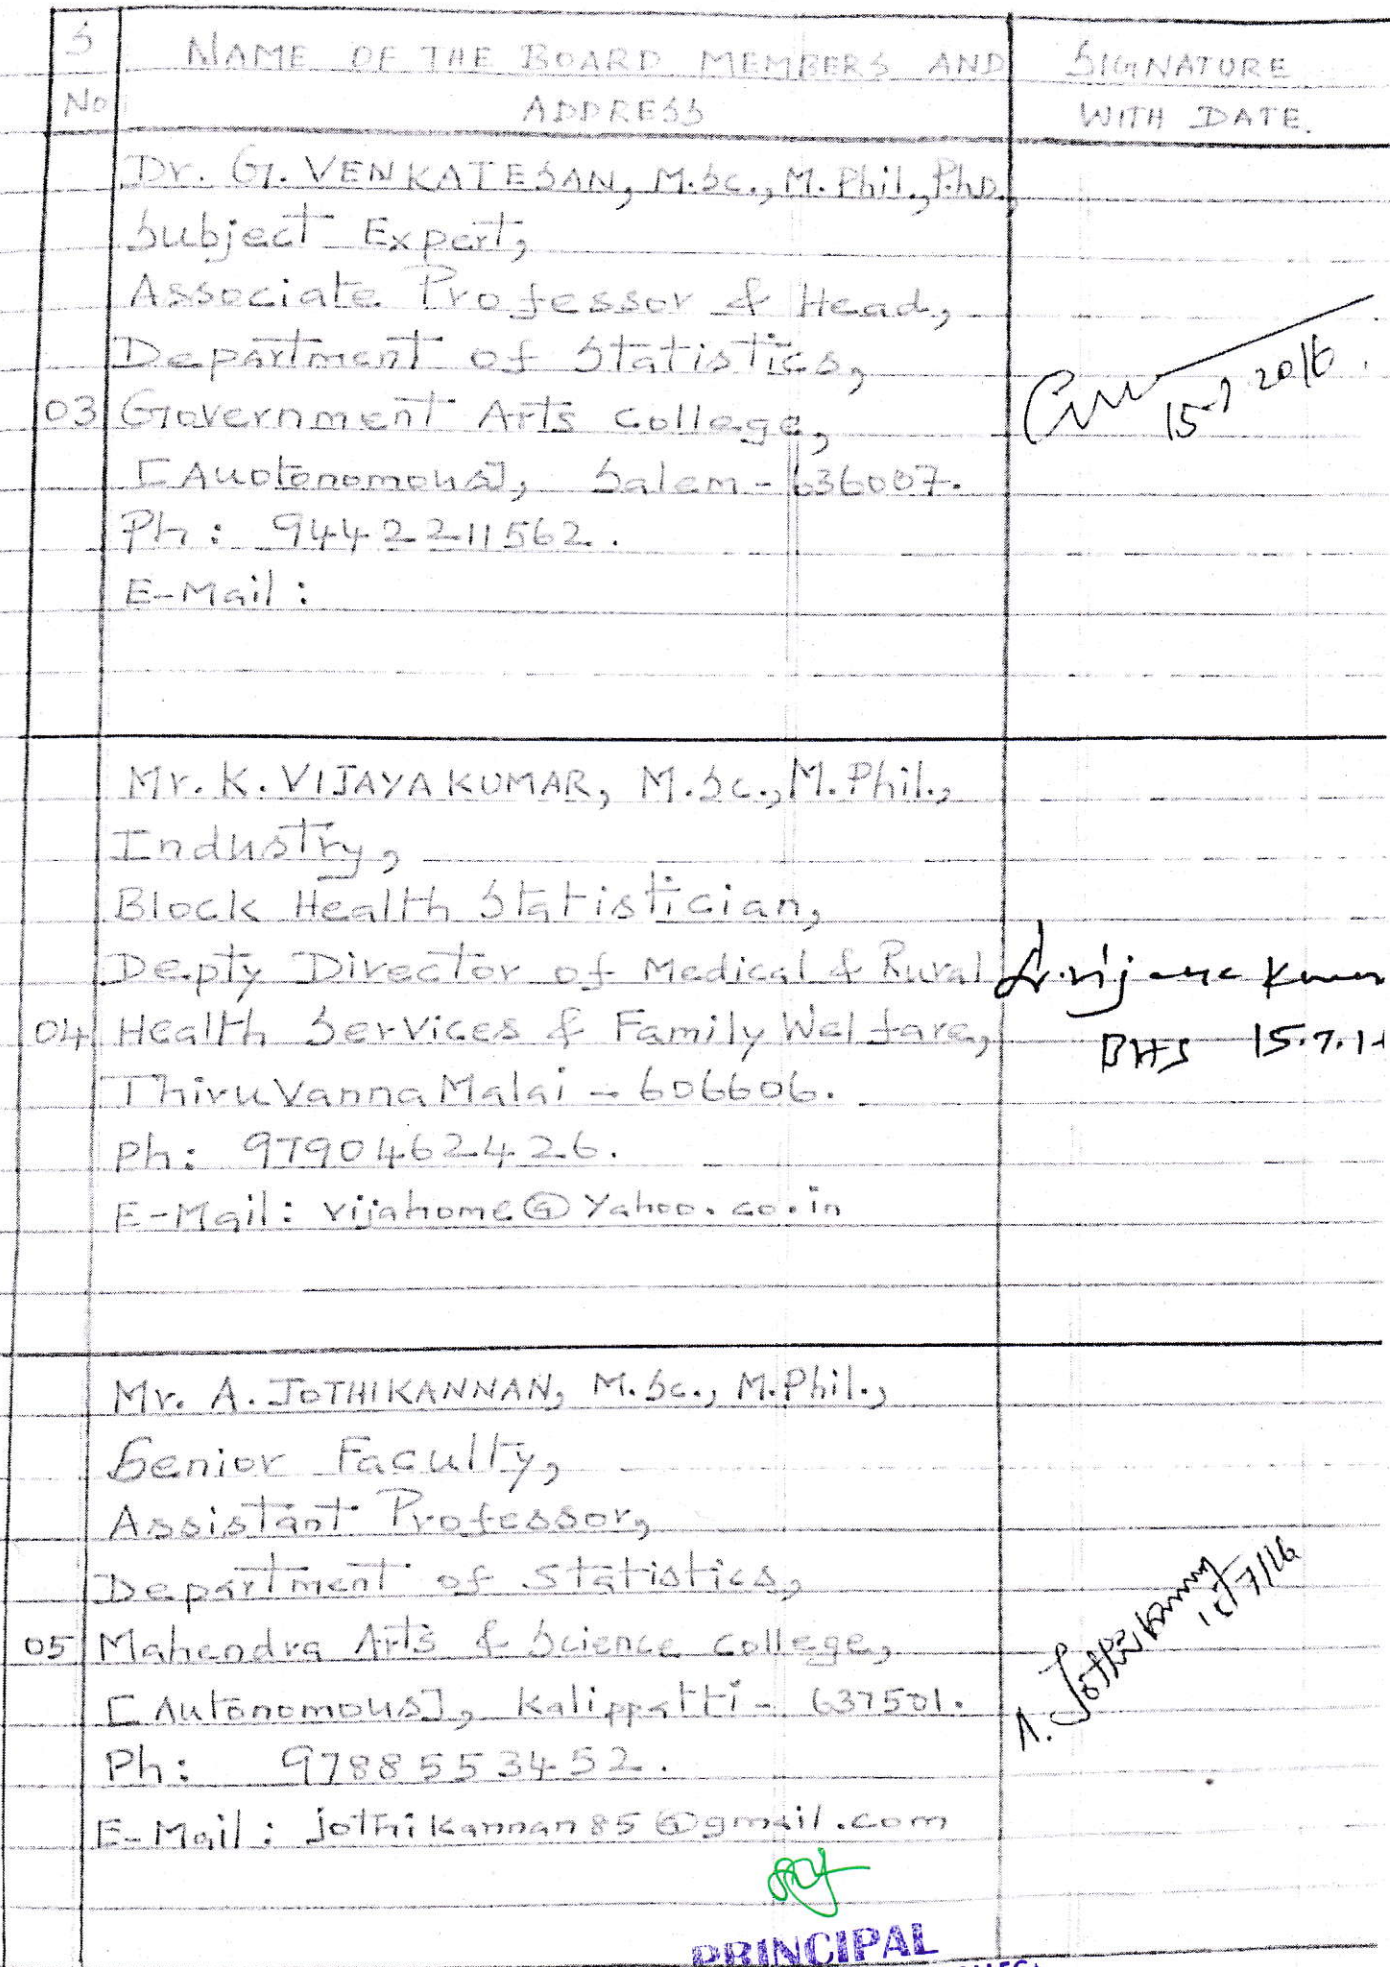 S NAME OF THE BOARD MEMBERS AND SIGNATURE
No ADDRESS WITH DATE.
Dr. G. VENKATESAN, M.Sc., M.Phil., P.hD.,
Subject Expert,
Associate Professor & Head,
Department of Statistics,
03 Government Arts College,
[Auotonomous], Salem - 636007.
Ph: 9442211562.
E-Mail:
15-7 2016.
Mr. K. VIJAYAKUMAR, M.Sc., M.Phil.,
Industry,
Block Health Statistician,
Depty Director of Medical & Rural
04 Health Services & Family Welfare,
ThiruVannaMalai - 606606.
Ph: 9790462426.
E-Mail: vijahome@Yahoo.co.in
BHS 15.7.1
Mr. A. JOTHIKANNAN, M.Sc., M.Phil.,
Senior Faculty,
Assistant Professor,
Department of Statistics,
05 Mahendra Arts & Science College,
[Autonomous], Kalippatti - 637501.
Ph: 9788553452.
E-Mail: jothikannan85@gmail.com
A. Jothikannan
15/7/16
PRINCIPAL